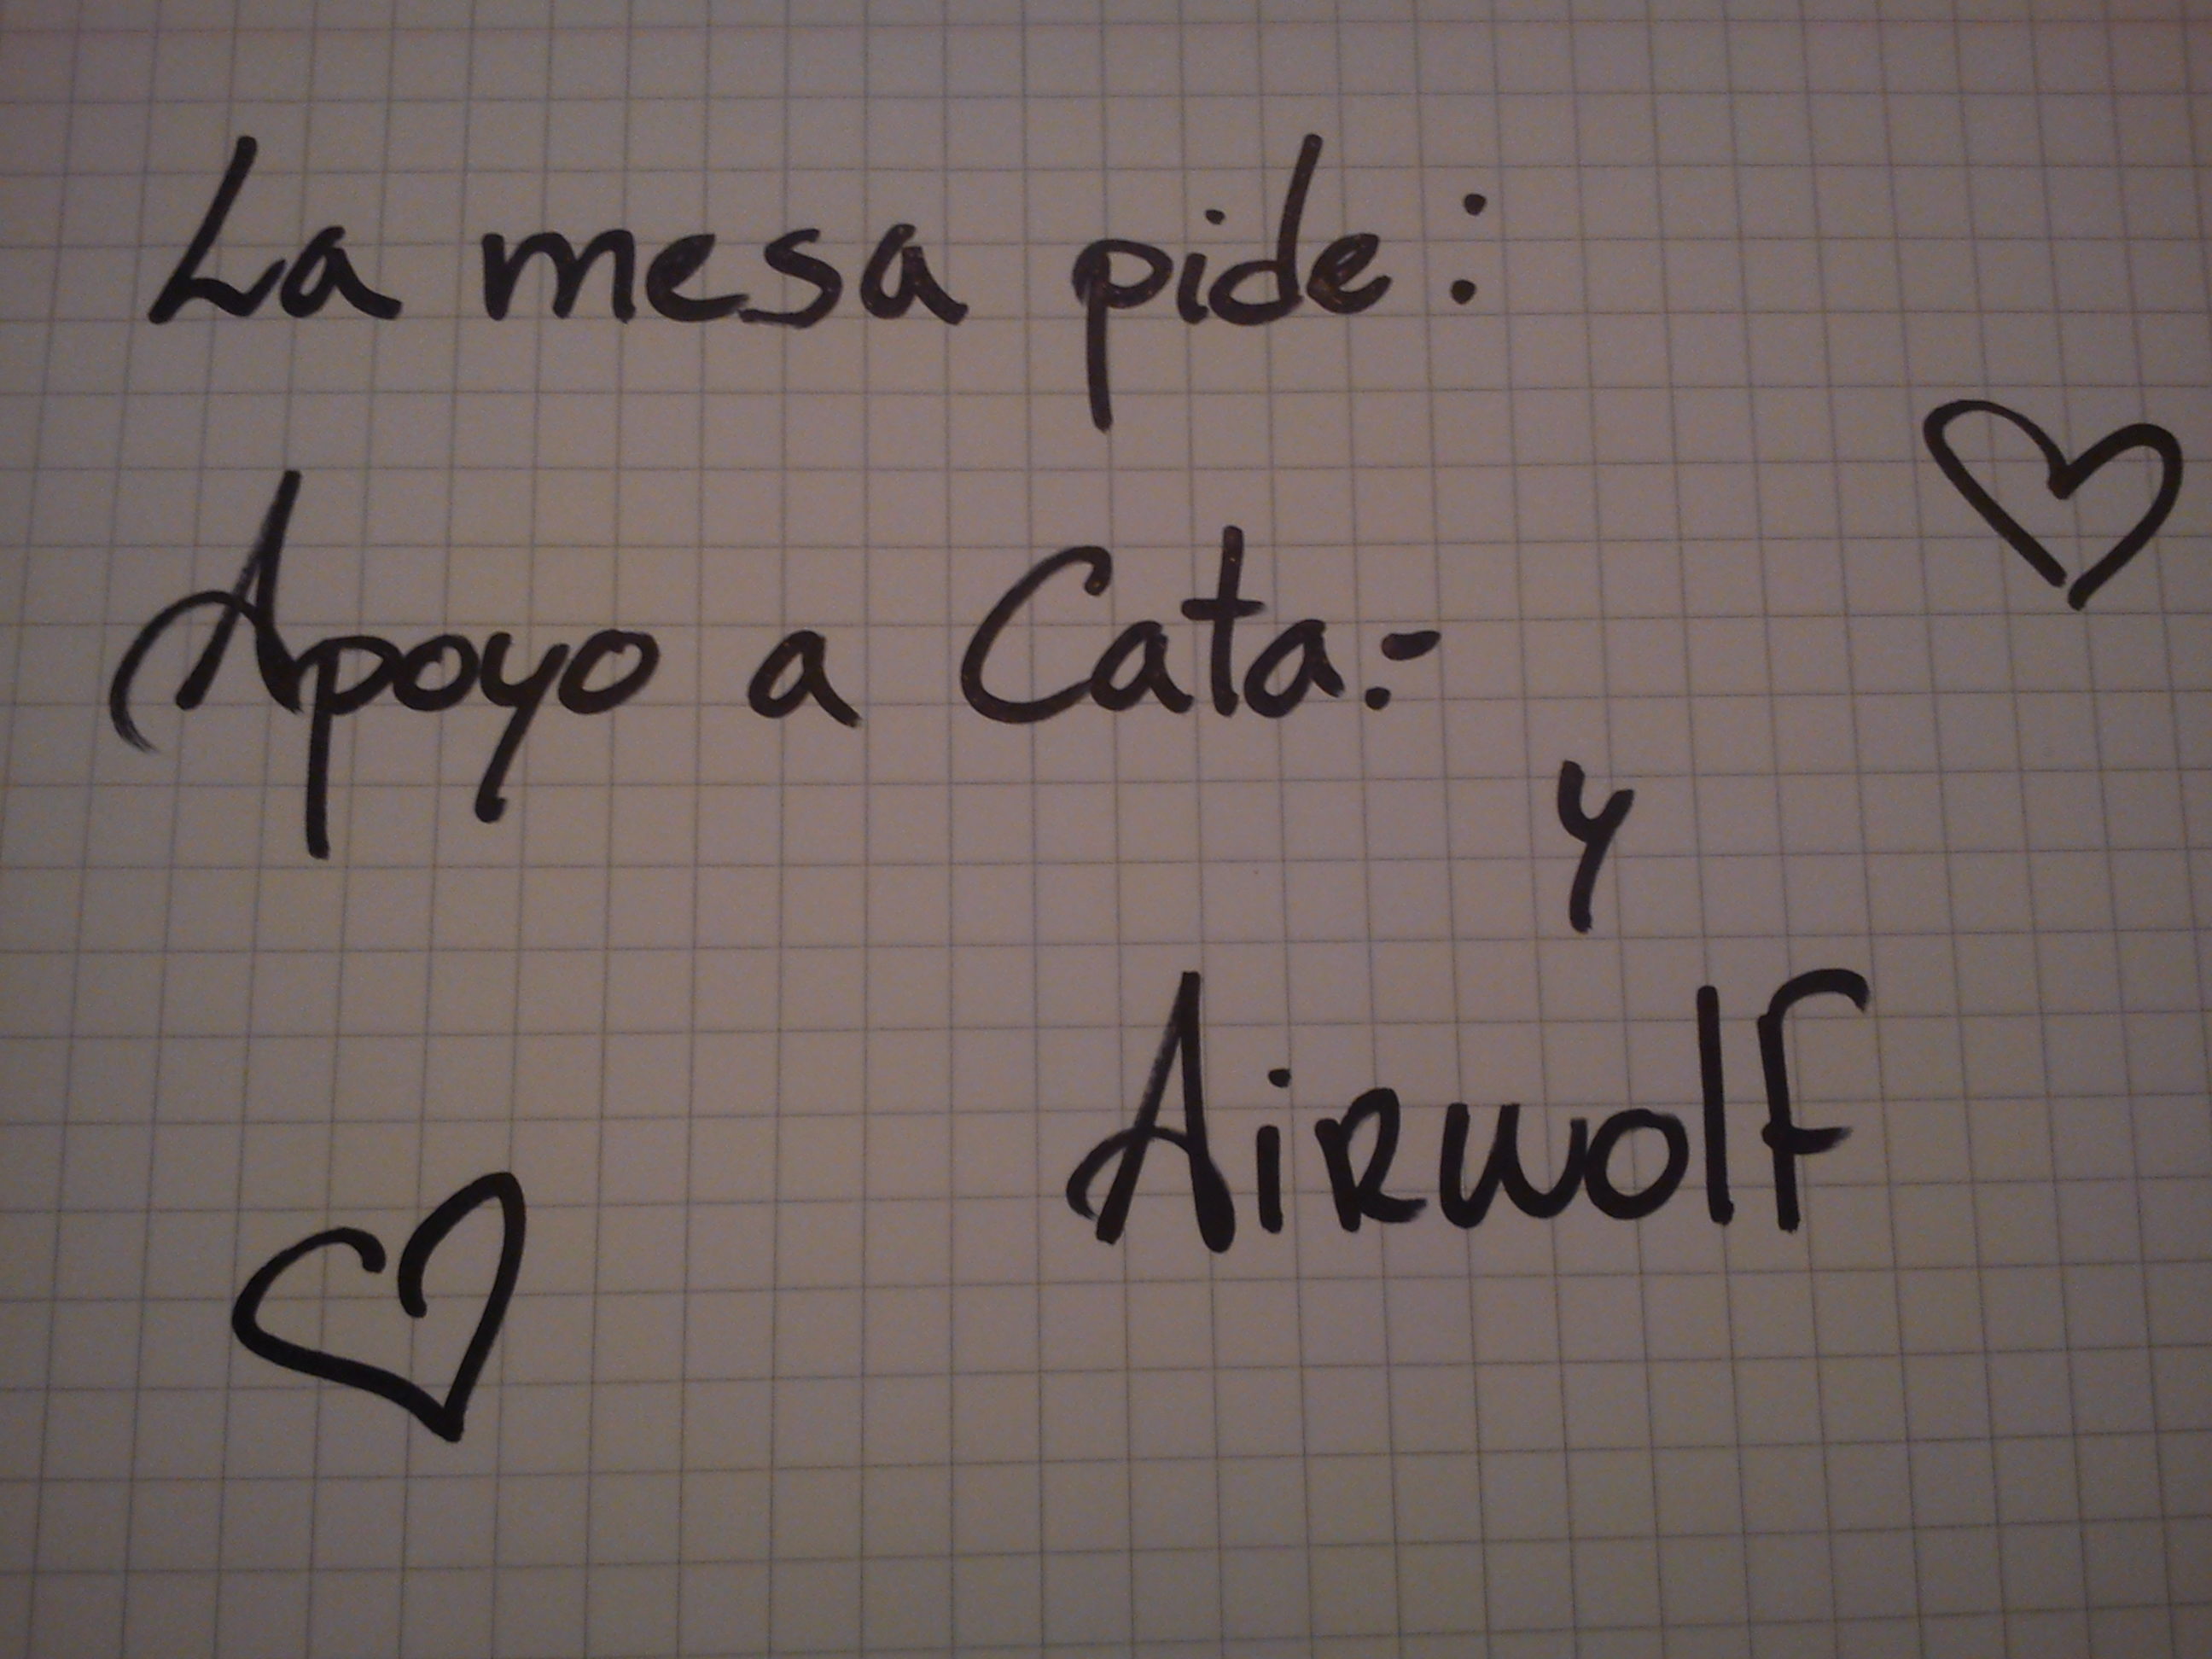 La mesa pide:
Apoyo a Cata.-
y
Airwolf